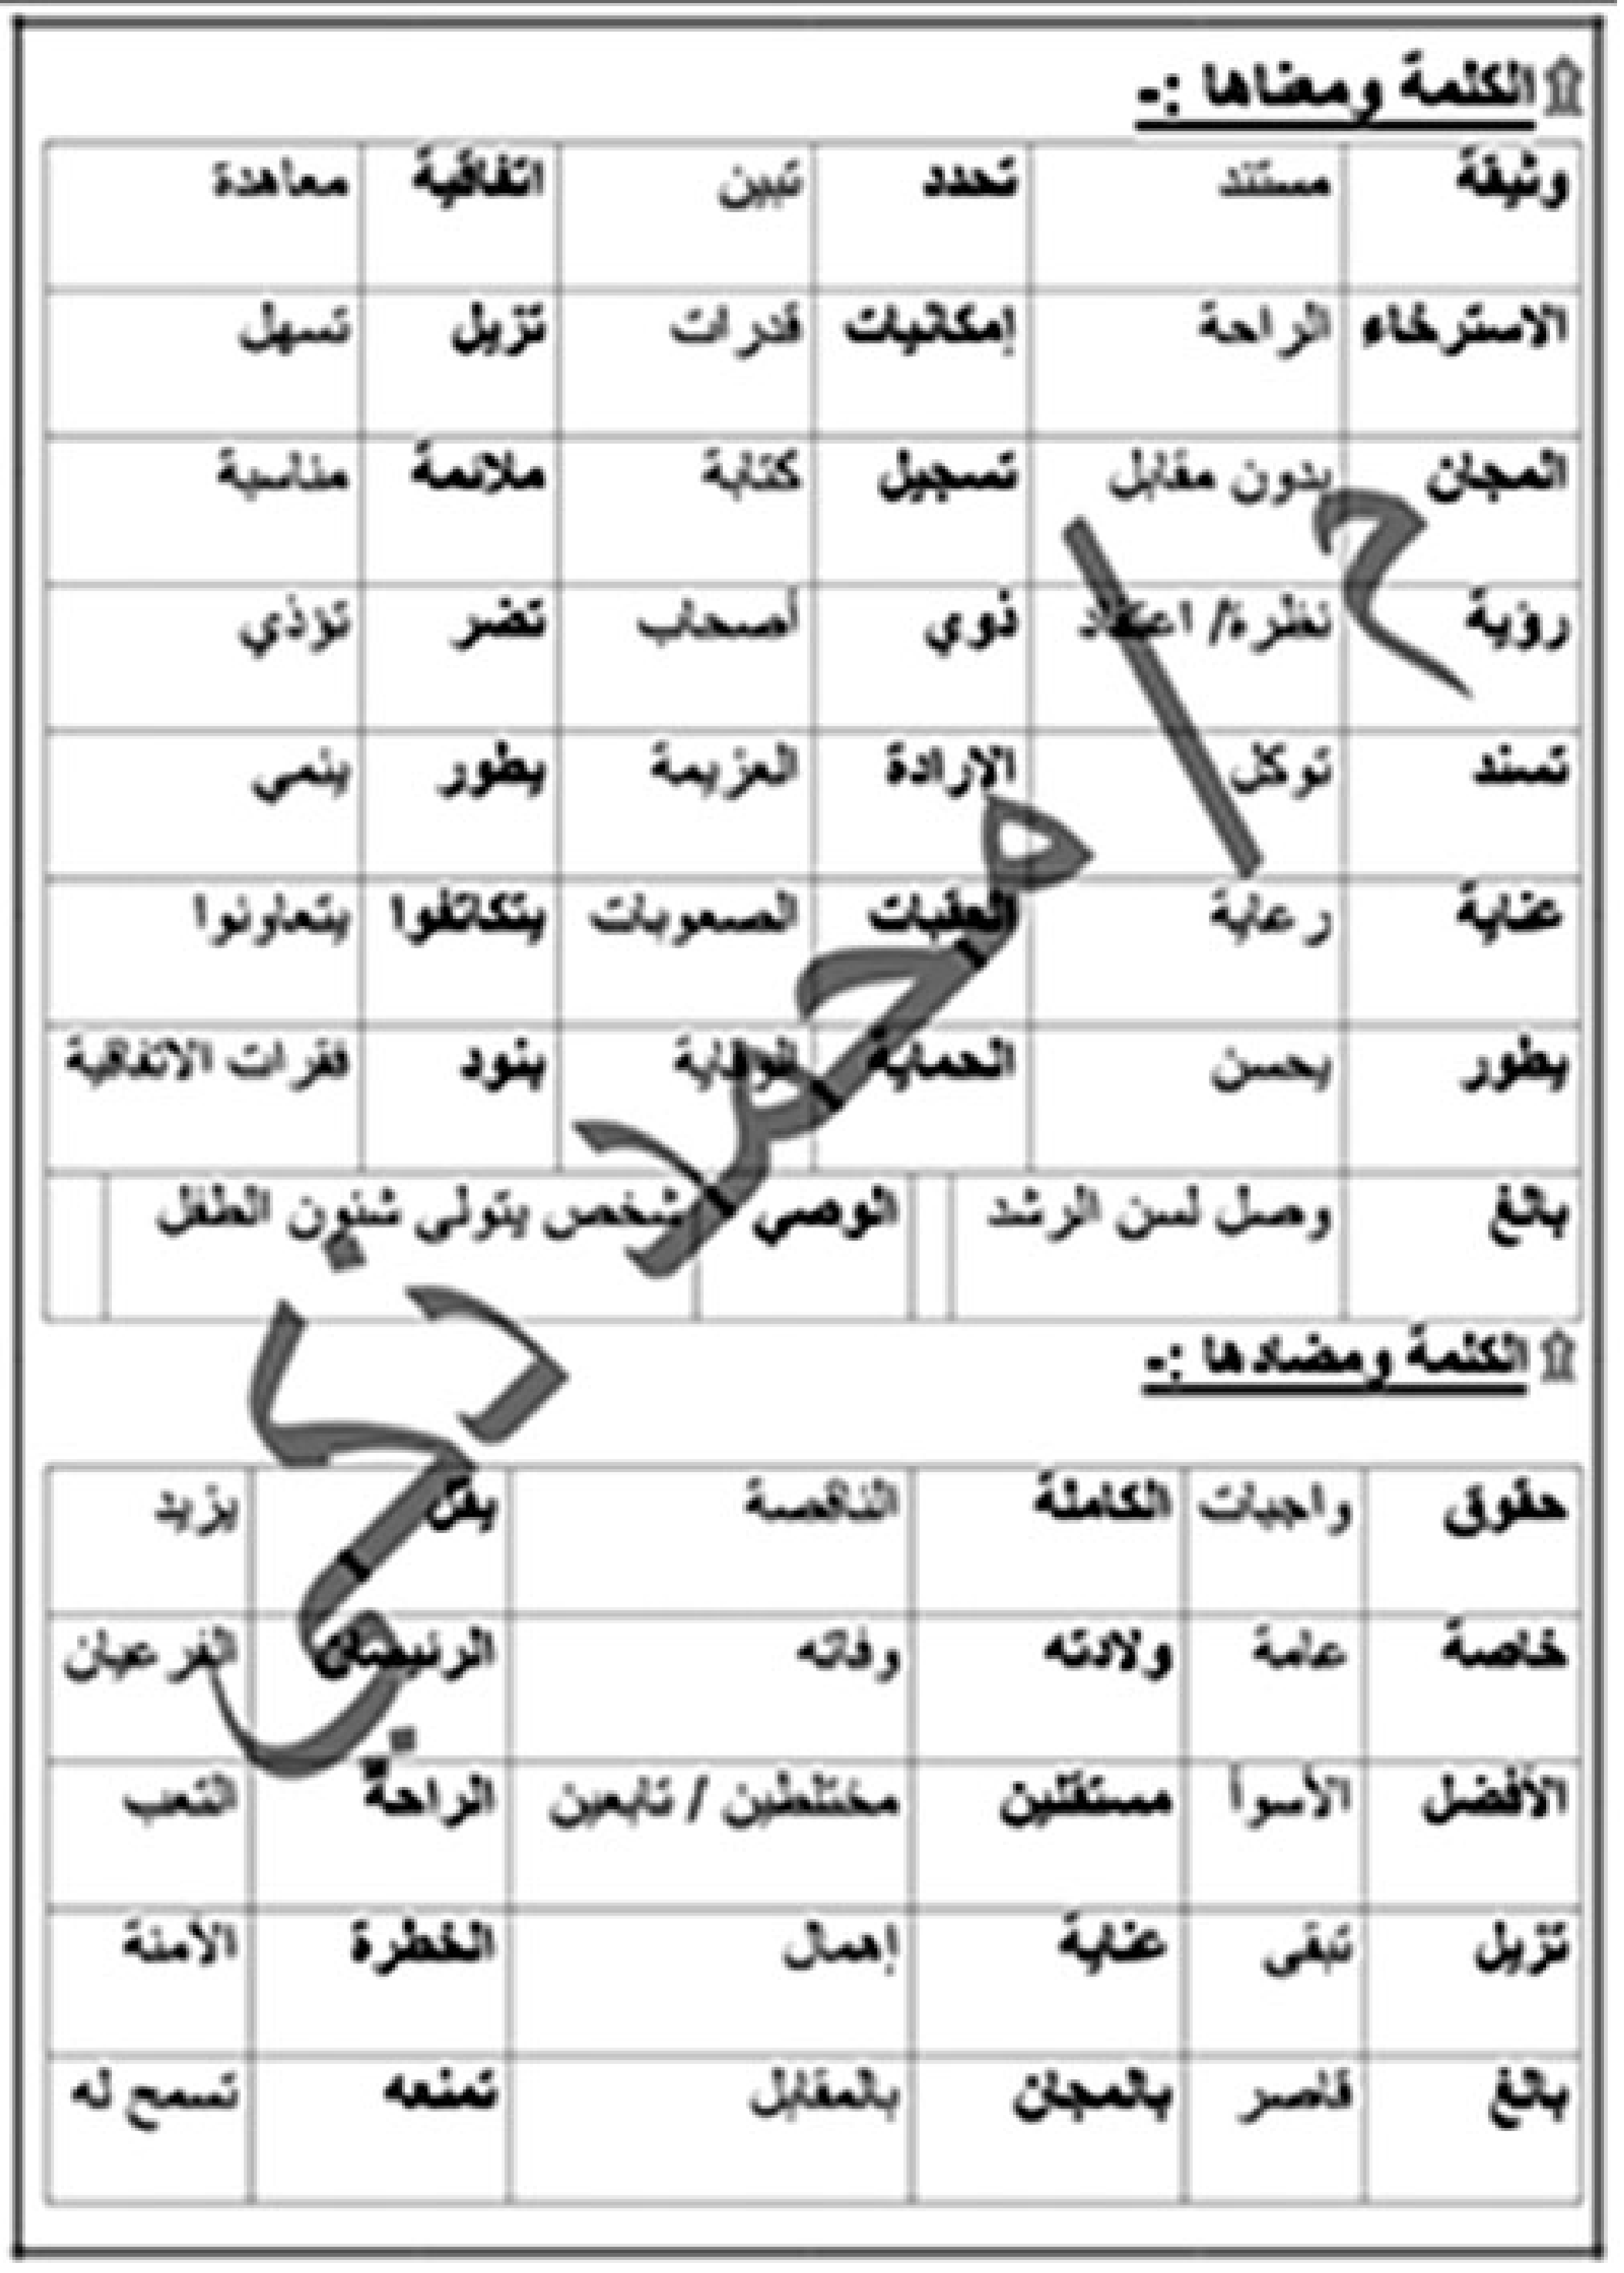 الكلمة ومعناها :-
وثيقة مستند تحدد تبين اتفاقية معاهدة
الاسترخاء الراحة إمكانيات قدرات تزيل تسهل
المجان بدون مقابل تسجيل كتابة ملائمة مناسبة
رؤية نظرة/ اعتقاد ذوي أصحاب تضر تؤذي
تسند توكل الإرادة العزيمة يطور ينمي
عناية رعاية العقبات الصعوبات يتكاتفوا يتعاونوا
يطور يحسن الحماية الوقاية بنود فقرات الاتفاقية
بالغ وصل لسن الرشد الوصي شخص يتولى شئون الطفل
الكلمة ومضادها :-
حقوق واجبات الكاملة الناقصة يقل يزيد
خاصة عامة ولادته وفاته الرئيسان الفرعيان
الأفضل الأسوأ مستقلين مختلطين / تابعين الراحة التعب
تزيل تبقى عناية إهمال الخطرة الآمنة
بالغ قاصر بالمجان بالمقابل تمنعه تسمح له